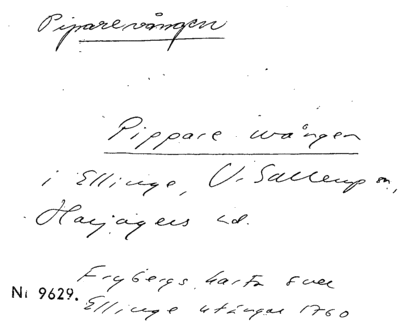 Piparevången
Pippare wången
i Ellinge, V. Sallerup sn,
Harjagers hd.
Frybergs karta över
Nr 9629. Ellinge utängar 1760